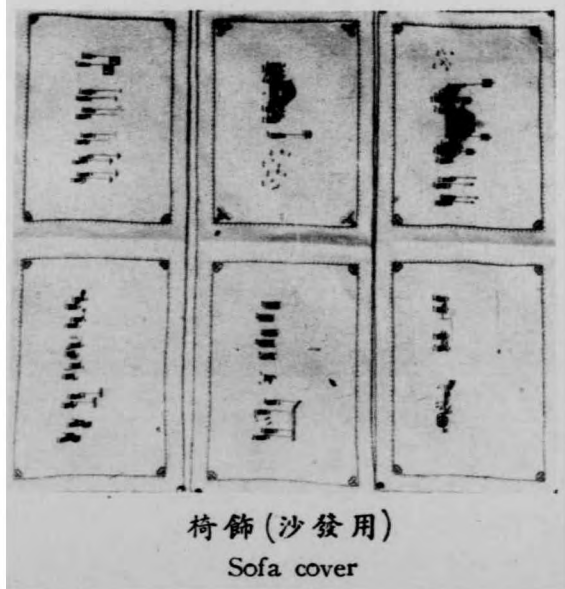 椅飾(沙發用)
Sofa cover